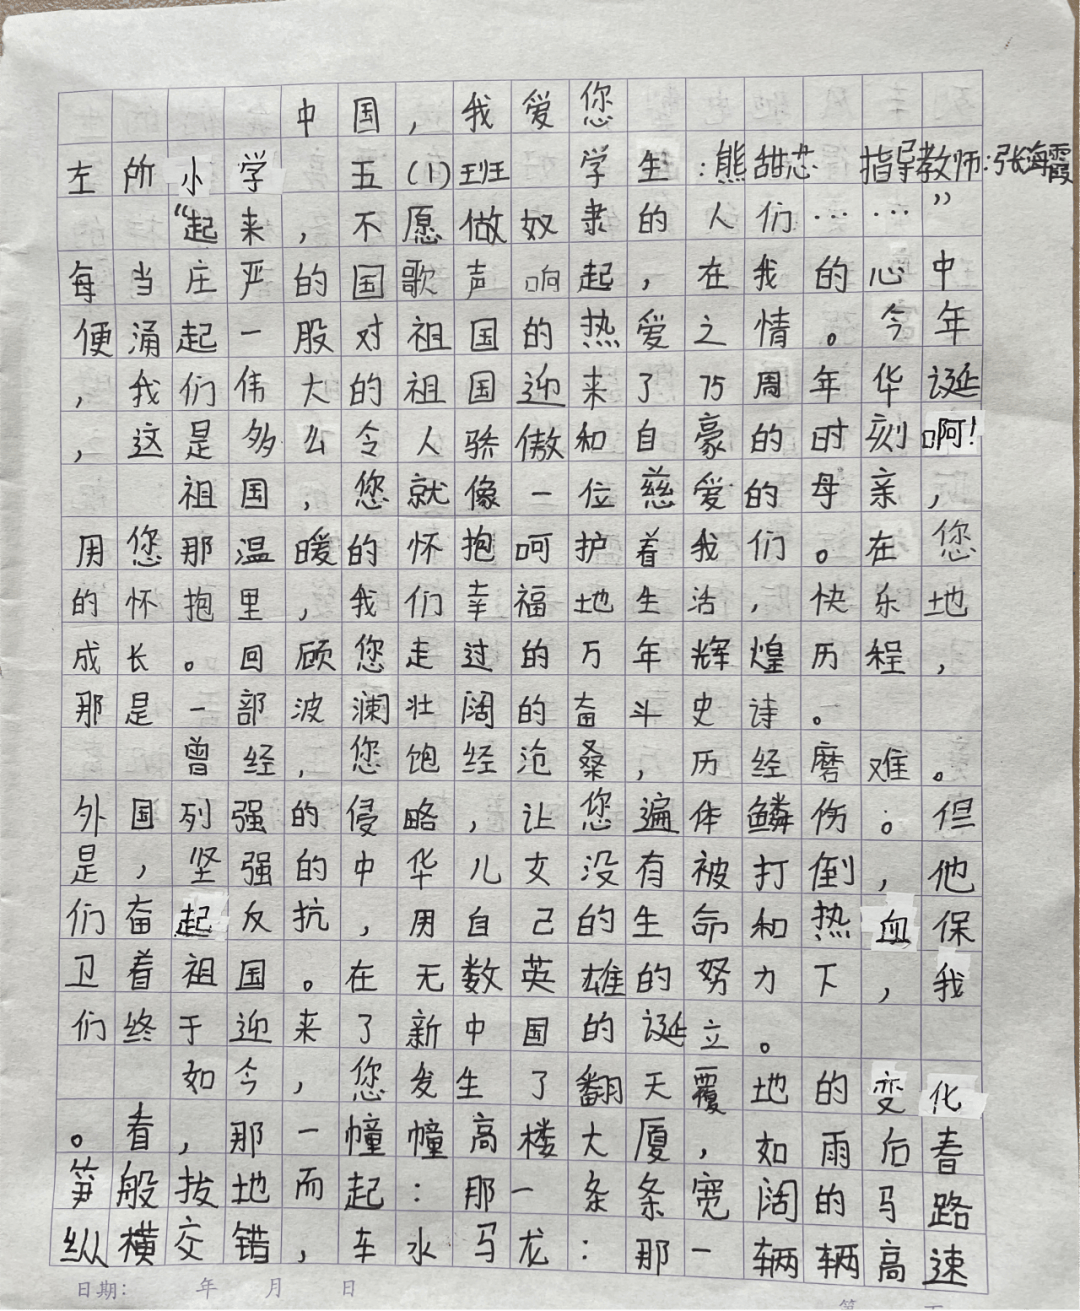 中国，我爱您
左所小学 五(1)班 学生：熊甜芯 指导教师：张海霞
“起来，不愿做奴隶的人们……”
每当庄严的国歌声响起，在我的心中
便涌起一股对祖国的热爱之情。今年
，我们伟大的祖国迎来了75周年华诞
，这是多么令人骄傲和自豪的时刻啊！
祖国，您就像一位慈爱的母亲，
用您那温暖的怀抱呵护着我们。在您
的怀抱里，我们幸福地生活，快乐地
成长。回顾您走过的万年辉煌历程，
那是一部波澜壮阔的奋斗史诗。
曾经，您饱经沧桑，历经磨难。
外国列强的侵略，让您遍体鳞伤。但
是，坚强的中华儿女没有被打倒，他
们奋起反抗，用自己的生命和热血保
卫着祖国。在无数英雄的努力下，我
们终于迎来了新中国的诞立。
如今，您发生了翻天覆地的变化
。看，那一幢幢高楼大厦，如雨后春
笋般拔地而起：那一条条宽阔的马路
纵横交错，车水马龙：那一辆辆高速
日期： 年 月 日